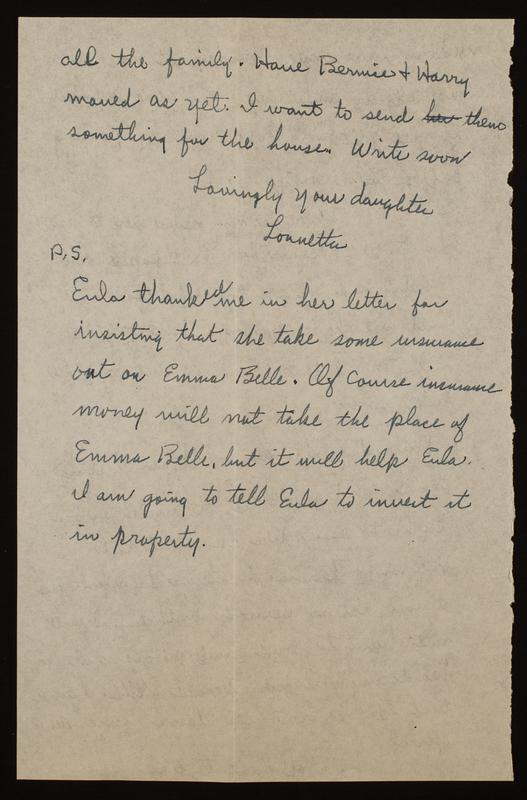 all the family. Have Bernice & Harry
moved as yet. I want to send her them
something for the house. Write soon
Lovingly your daughter
Lonnetta
P.S.
Eula thanked me in her letter for
insisting that she take some insurance
out on Emma Belle. Of course insurance
money will not take the place of
Emma Belle, but it will help Eula.
I am going to tell Eula to invest it
in property.